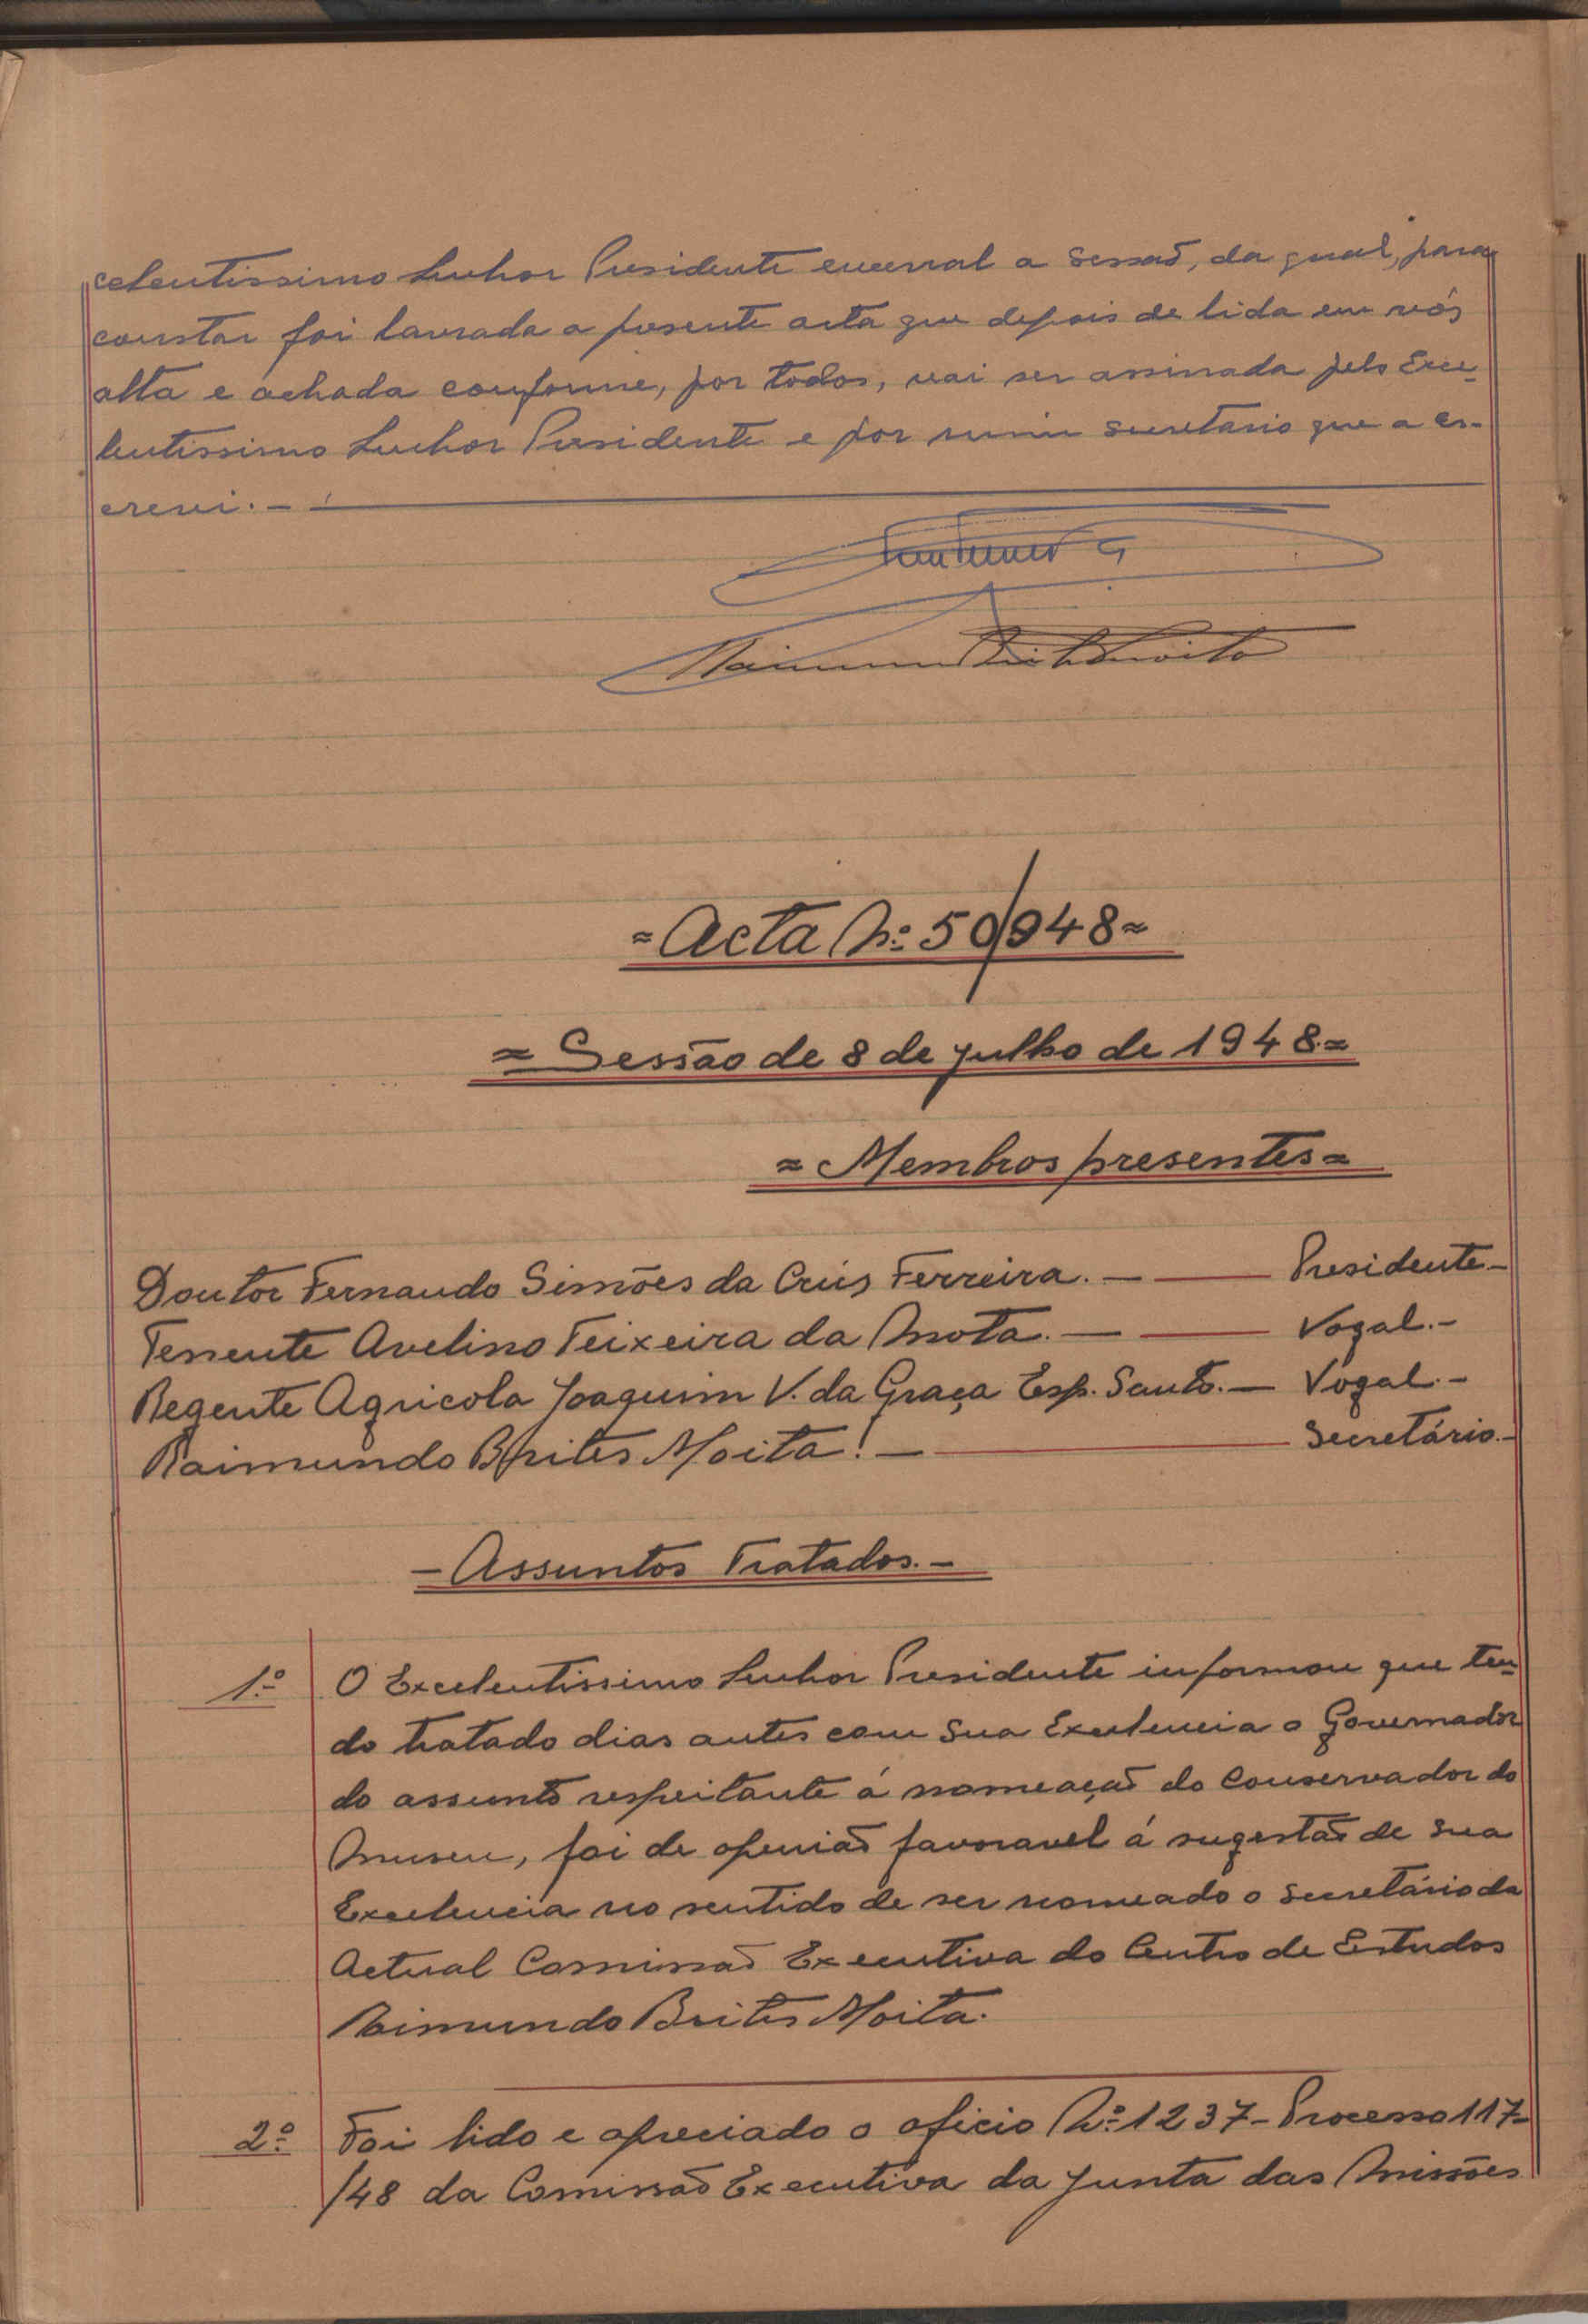 celentissimo Senhor Presidente encerrad a sessaõ, da qual, para
constar foi lavrada a presente acta que depois de lida em vós
alta e achada conforme, por todos, vai ser assinada pelo Exce-
lentissimo Senhor Presidente e por mim secretario que a es-
crevi. -
Raimundo Brites Moita
= Acta Nº 50/948 =
= Sessão de 8 de julho de 1948. =
= Membros presentes =
Doutor Fernando Simões da Crús Ferreira. — Presidente -
Tenente Avelino Teixeira da Mota. — Vogal. -
Regente Agricola Joaquim V. da Graça Esp. Santo. — Vogal. -
Raimundo Brites Moita! — Secretário. -
- Assuntos Tratados. -
1º O Excelentissimo Senhor Presidente informou que ten-
do tratado dias antes com Sua Excelencia o Governador
do assunto respeitante á nomeaçaõ do Conservador do
Museu, foi de openiaõ favoravel á sugestaõ de Sua
Excelencia no sentido de ser nomeado o secretário da
Actual Comissaõ Executiva do Centro de Estudos
Raimundo Brites Moita.
2º Foi lido e apreciado o oficio Nº 1237 - Processo 117-
/48 da Comissaõ Executiva da Junta das Missões